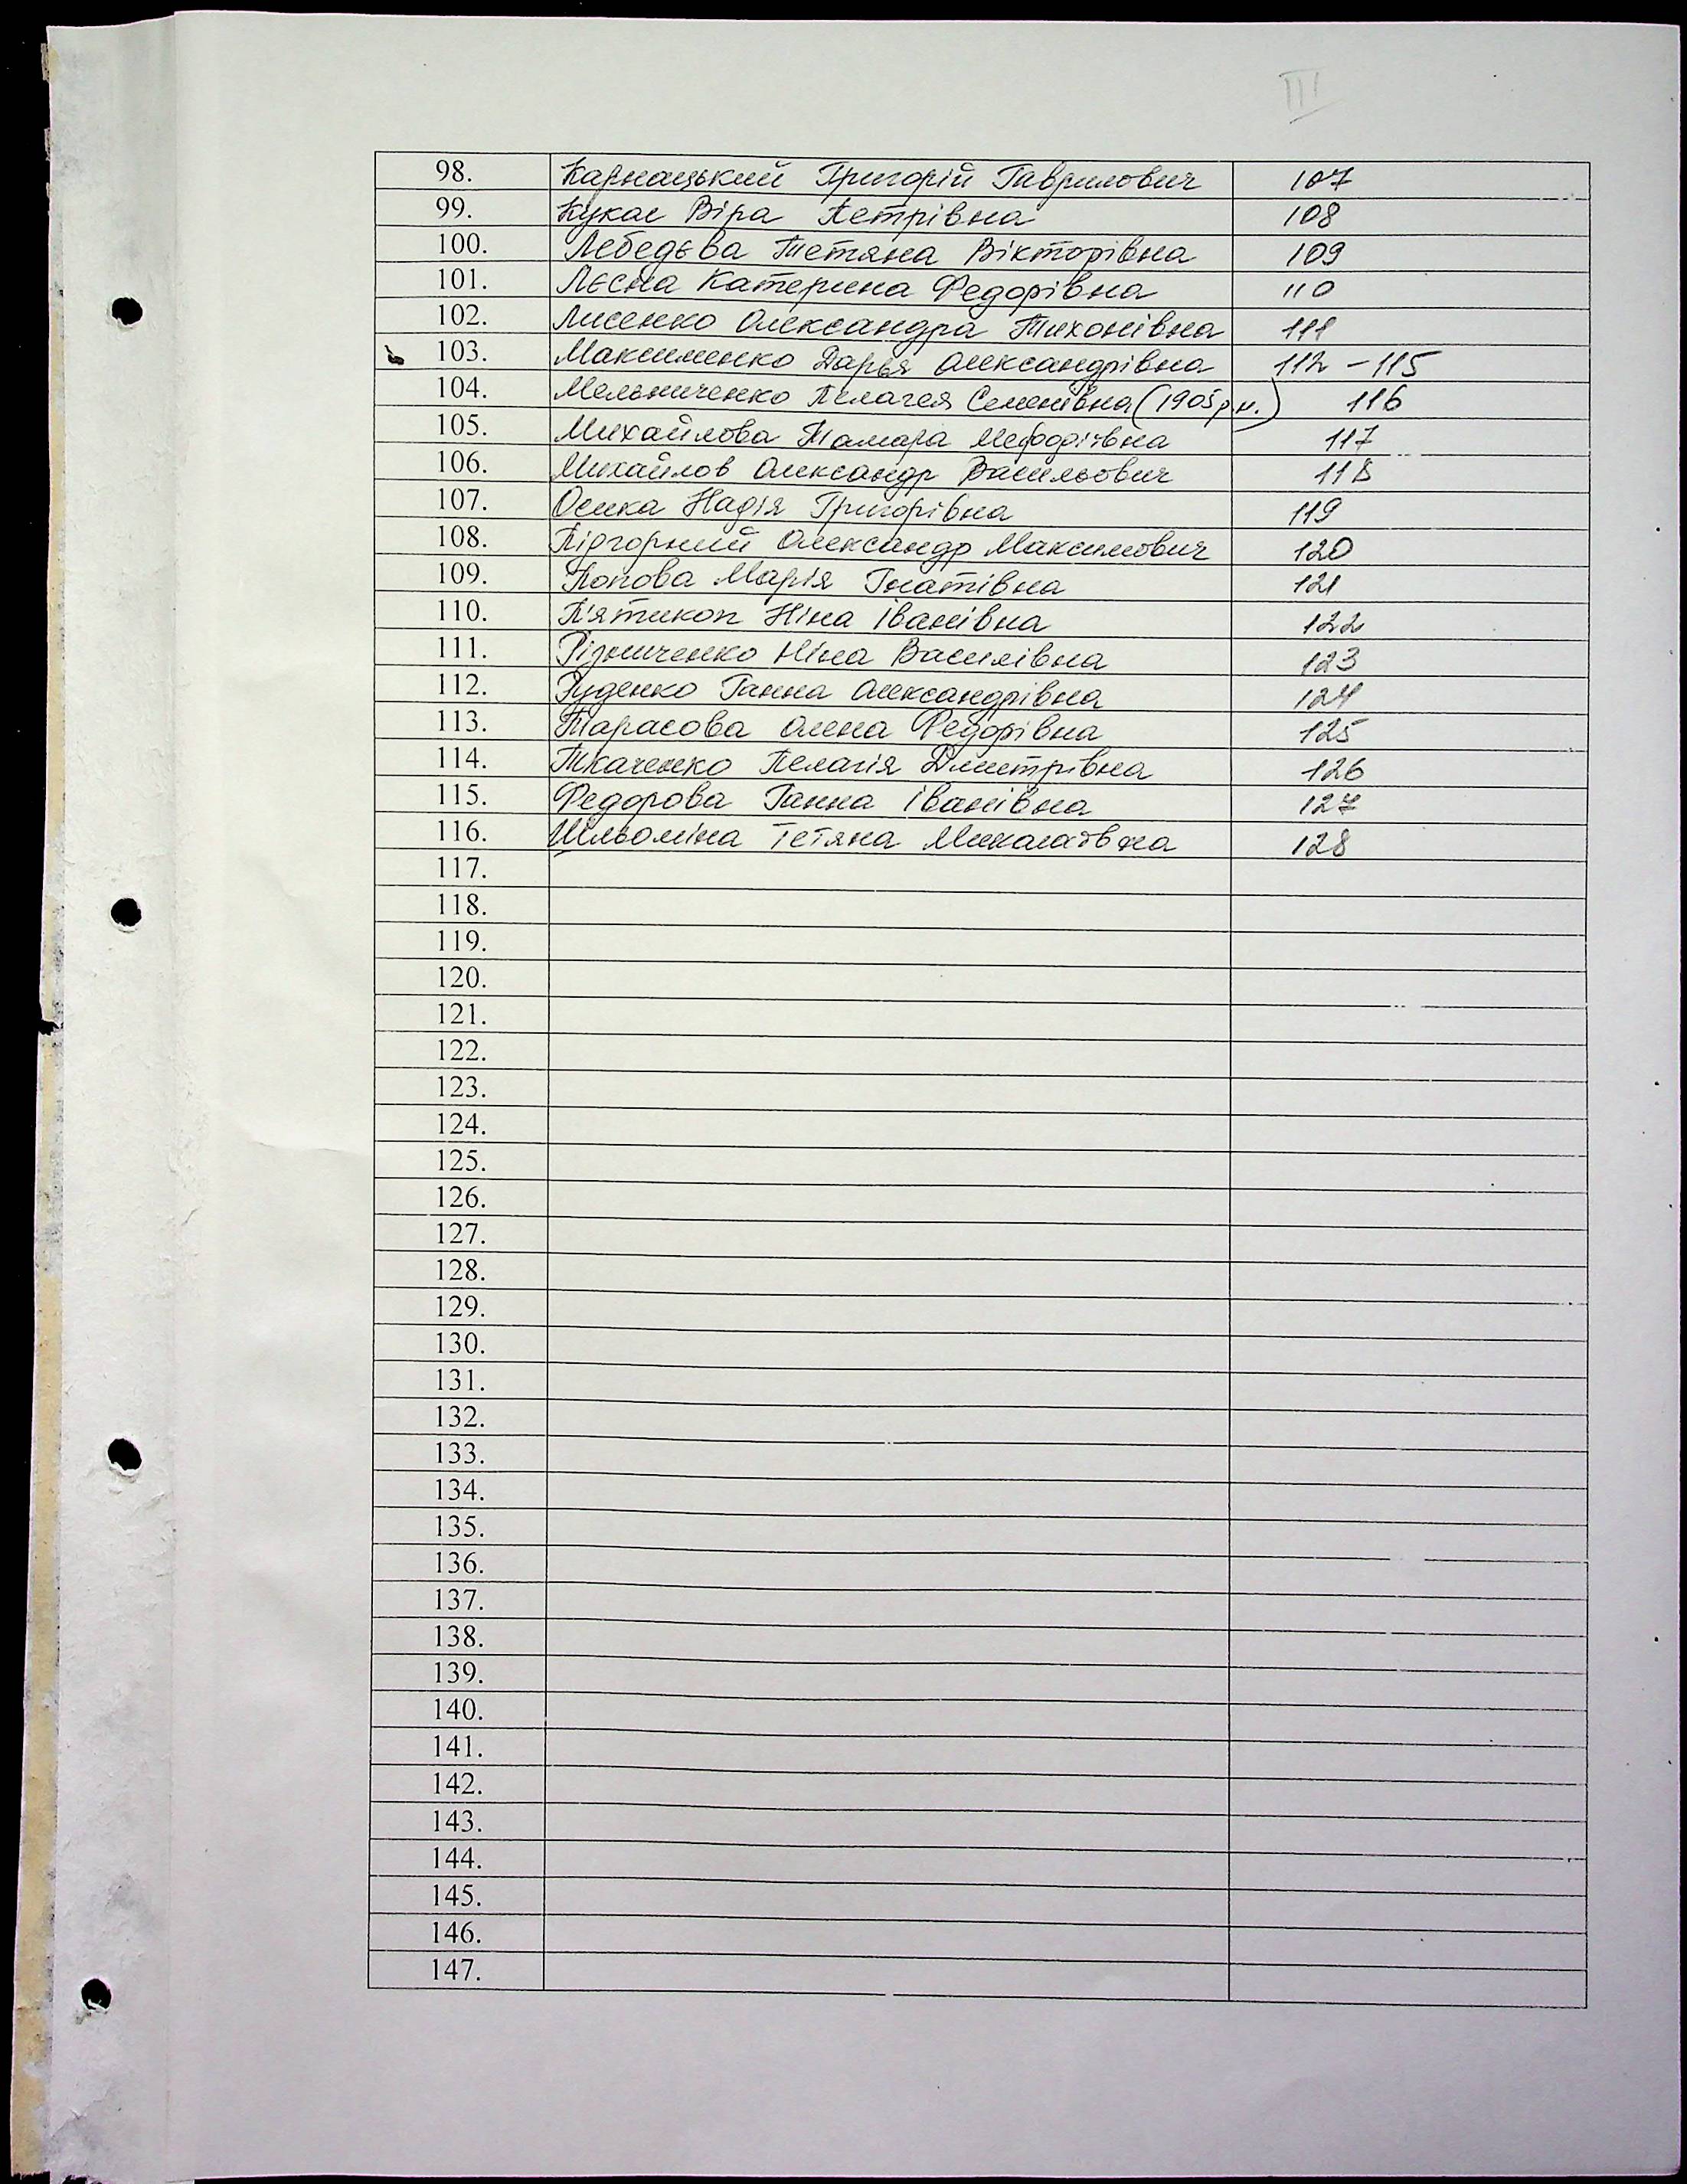 III
98. Карнацький Григорій Гаврилович 107
99. Кукас Віра Петрівна 108
100. Лебедєва Тетяна Вікторівна 109
101. Лєсна Катерина Федорівна 110
102. Лисенко Олександра Тихонівна 111
103. Максименко Дарья Олександрівна 112 - 115
104. Мельниченко Пелагея Семенівна (1905 р.н.) 116
105. Михайлова Тамара Мефодіївна 117
106. Михайлов Олександр Васильович 118
107. Осика Надія Григорівна 119
108. Підгорний Олександр Максимович 120
109. Попова Марія Гнатівна 121
110. П'ятикоп Ніна Іванівна 122
111. Різниченко Ніна Василівна 123
112. Руденко Ганна Олександрівна 124
113. Тарасова Олена Федорівна 125
114. Ткаченко Пелагія Дмитрівна 126
115. Федорова Ганна Іванівна 127
116. Шильоміна Тетяна Миколаївна 128
117.
118.
119.
120.
121.
122.
123.
124.
125.
126.
127.
128.
129.
130.
131.
132.
133.
134.
135.
136.
137.
138.
139.
140.
141.
142.
143.
144.
145.
146.
147.